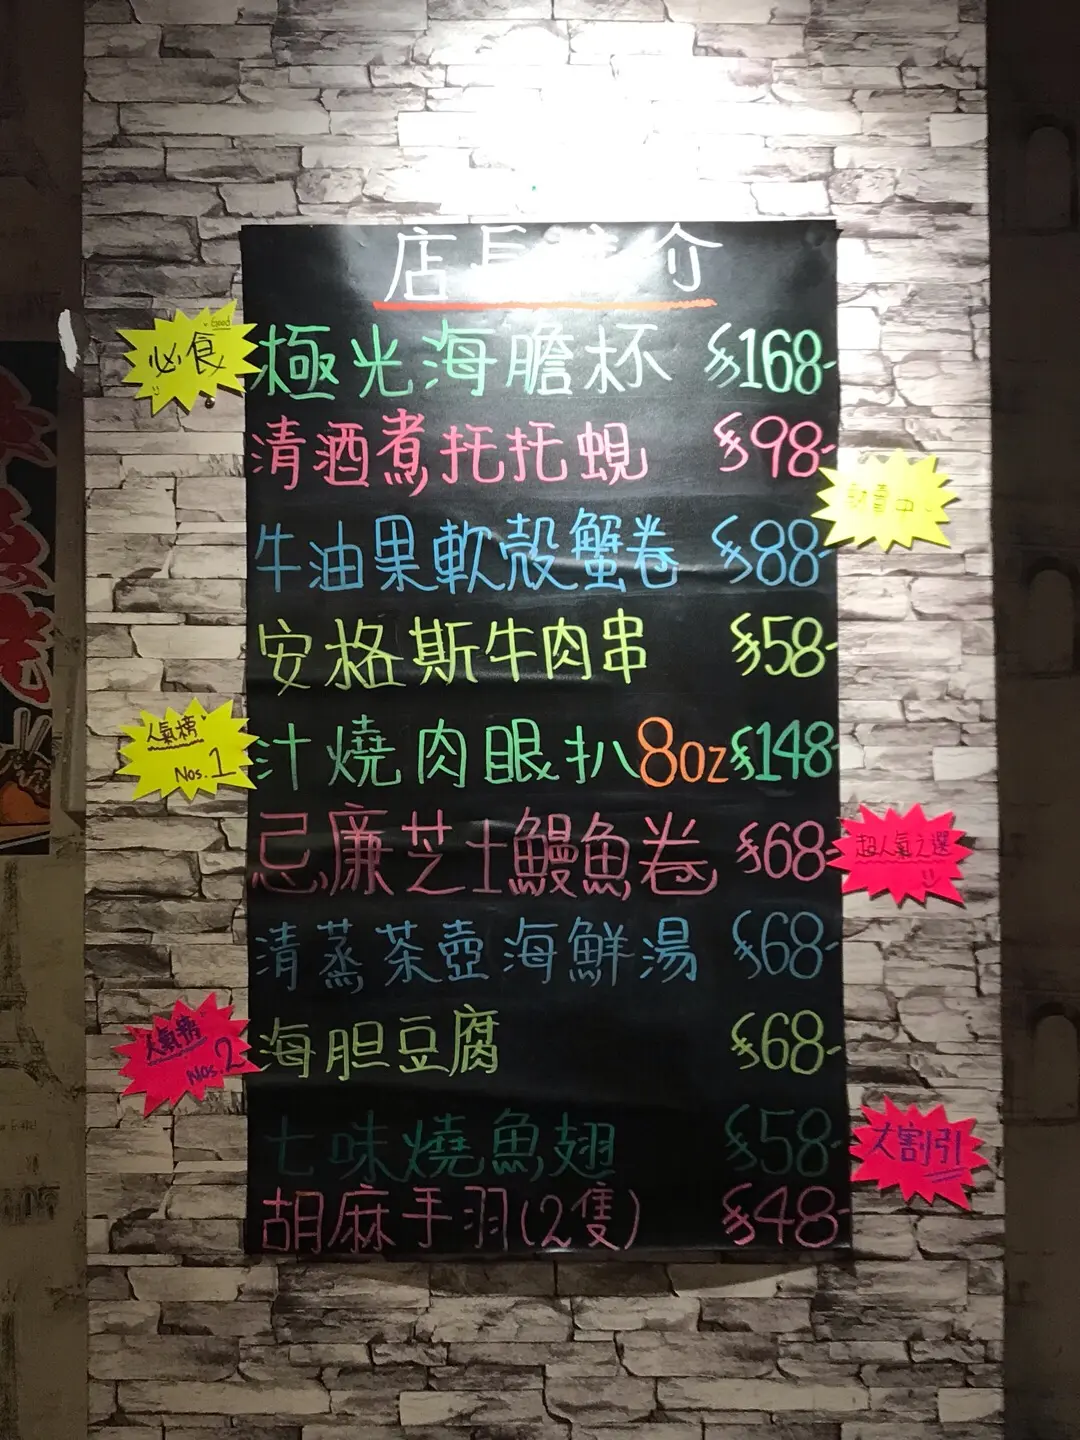 店長推介
必食
極光海膽杯 $168-
清酒煮托托蜆 $98-
熱賣中
牛油果軟殼蟹卷 $88-
安格斯牛肉串 $58-
人氣榜
Nos.1
汁燒肉眼扒8oz $148-
忌廉芝士鰻魚卷 $68-
超人氣之選
清蒸茶壺海鮮湯 $68-
人氣榜
Nos.2
海胆豆腐 $68-
七味燒魚翅 $58-
大割引
胡麻手羽(2隻) $48-